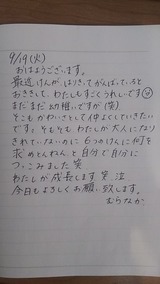 9/19(火)
おはようございます。
最近けんが はりきって がんばっていると
おききして、わたしもすごくうれしいです
まだまだ幼稚ですが(笑)
そこもかわいさとして仲よくしていきたい
です。そもそもわたしが大人になり
きれていないのに 6つのけんに何を
求めとんねん と自分で自分に
つっこみました 笑
わたしが成長します 笑 泣
今日もよろしくお願い致します。
むらなか